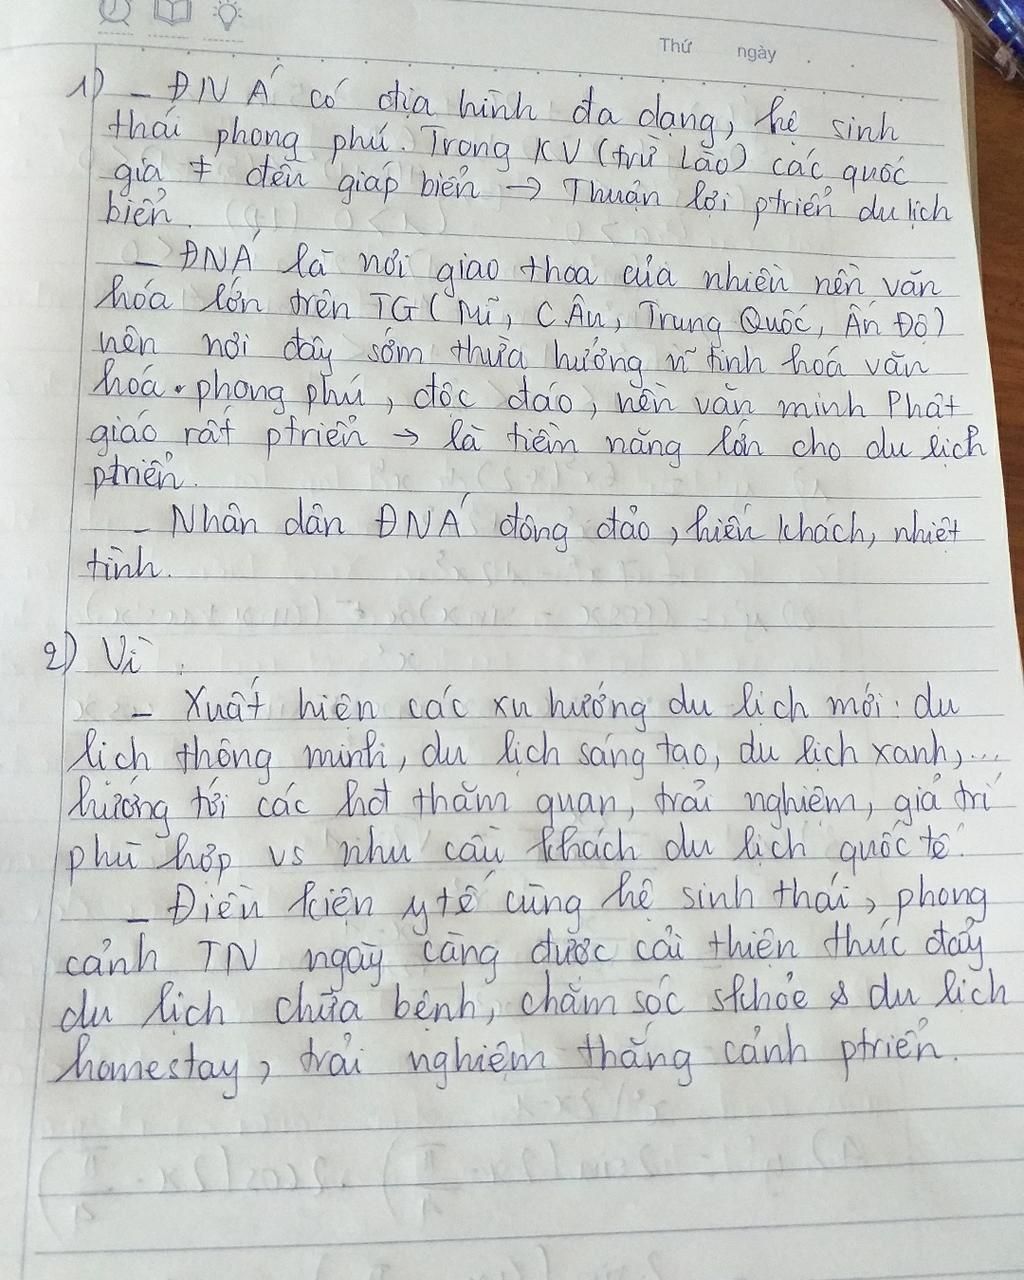 Thứ ngày
1) - ĐNÁ có địa hình đa dạng, hệ sinh
thái phong phú. Trong KV (trừ Lào) các quốc
gia ≠ đến giáp biển → Thuận lợi ptriển du lịch
biển.
- ĐNÁ là nơi giao thoa của nhiên nền văn
hóa lớn trên TG (Mĩ, C Âu, Trung Quốc, Ấn Độ)
nên nơi đây sớm thừa hưởng n~ tinh hoá văn
hoá phong phú, độc đáo, nền văn minh Phât
giáo rất ptriển → là tiềm năng lớn cho du lịch
ptriển.
- Nhân dân ĐNÁ đông đảo, hiếu khách, nhiệt
tình.
2) Vì
- Xuất hiện các xu hướng du lịch mới: du
lịch thông minh, du lịch sáng tạo, du lịch xanh,...
hướng tới các hđ thăm quan, trải nghiệm, giả trí
phù hợp vs nhu cầu khách du lịch quốc tế.
- Điền kiện y tế cùng hệ sinh thái, phong
cảnh TN ngày càng được cải thiện thúc đẩy
du lịch chữa bệnh, chăm sóc skhỏe & du lịch
homestay, trải nghiệm thắng cảnh ptriển.